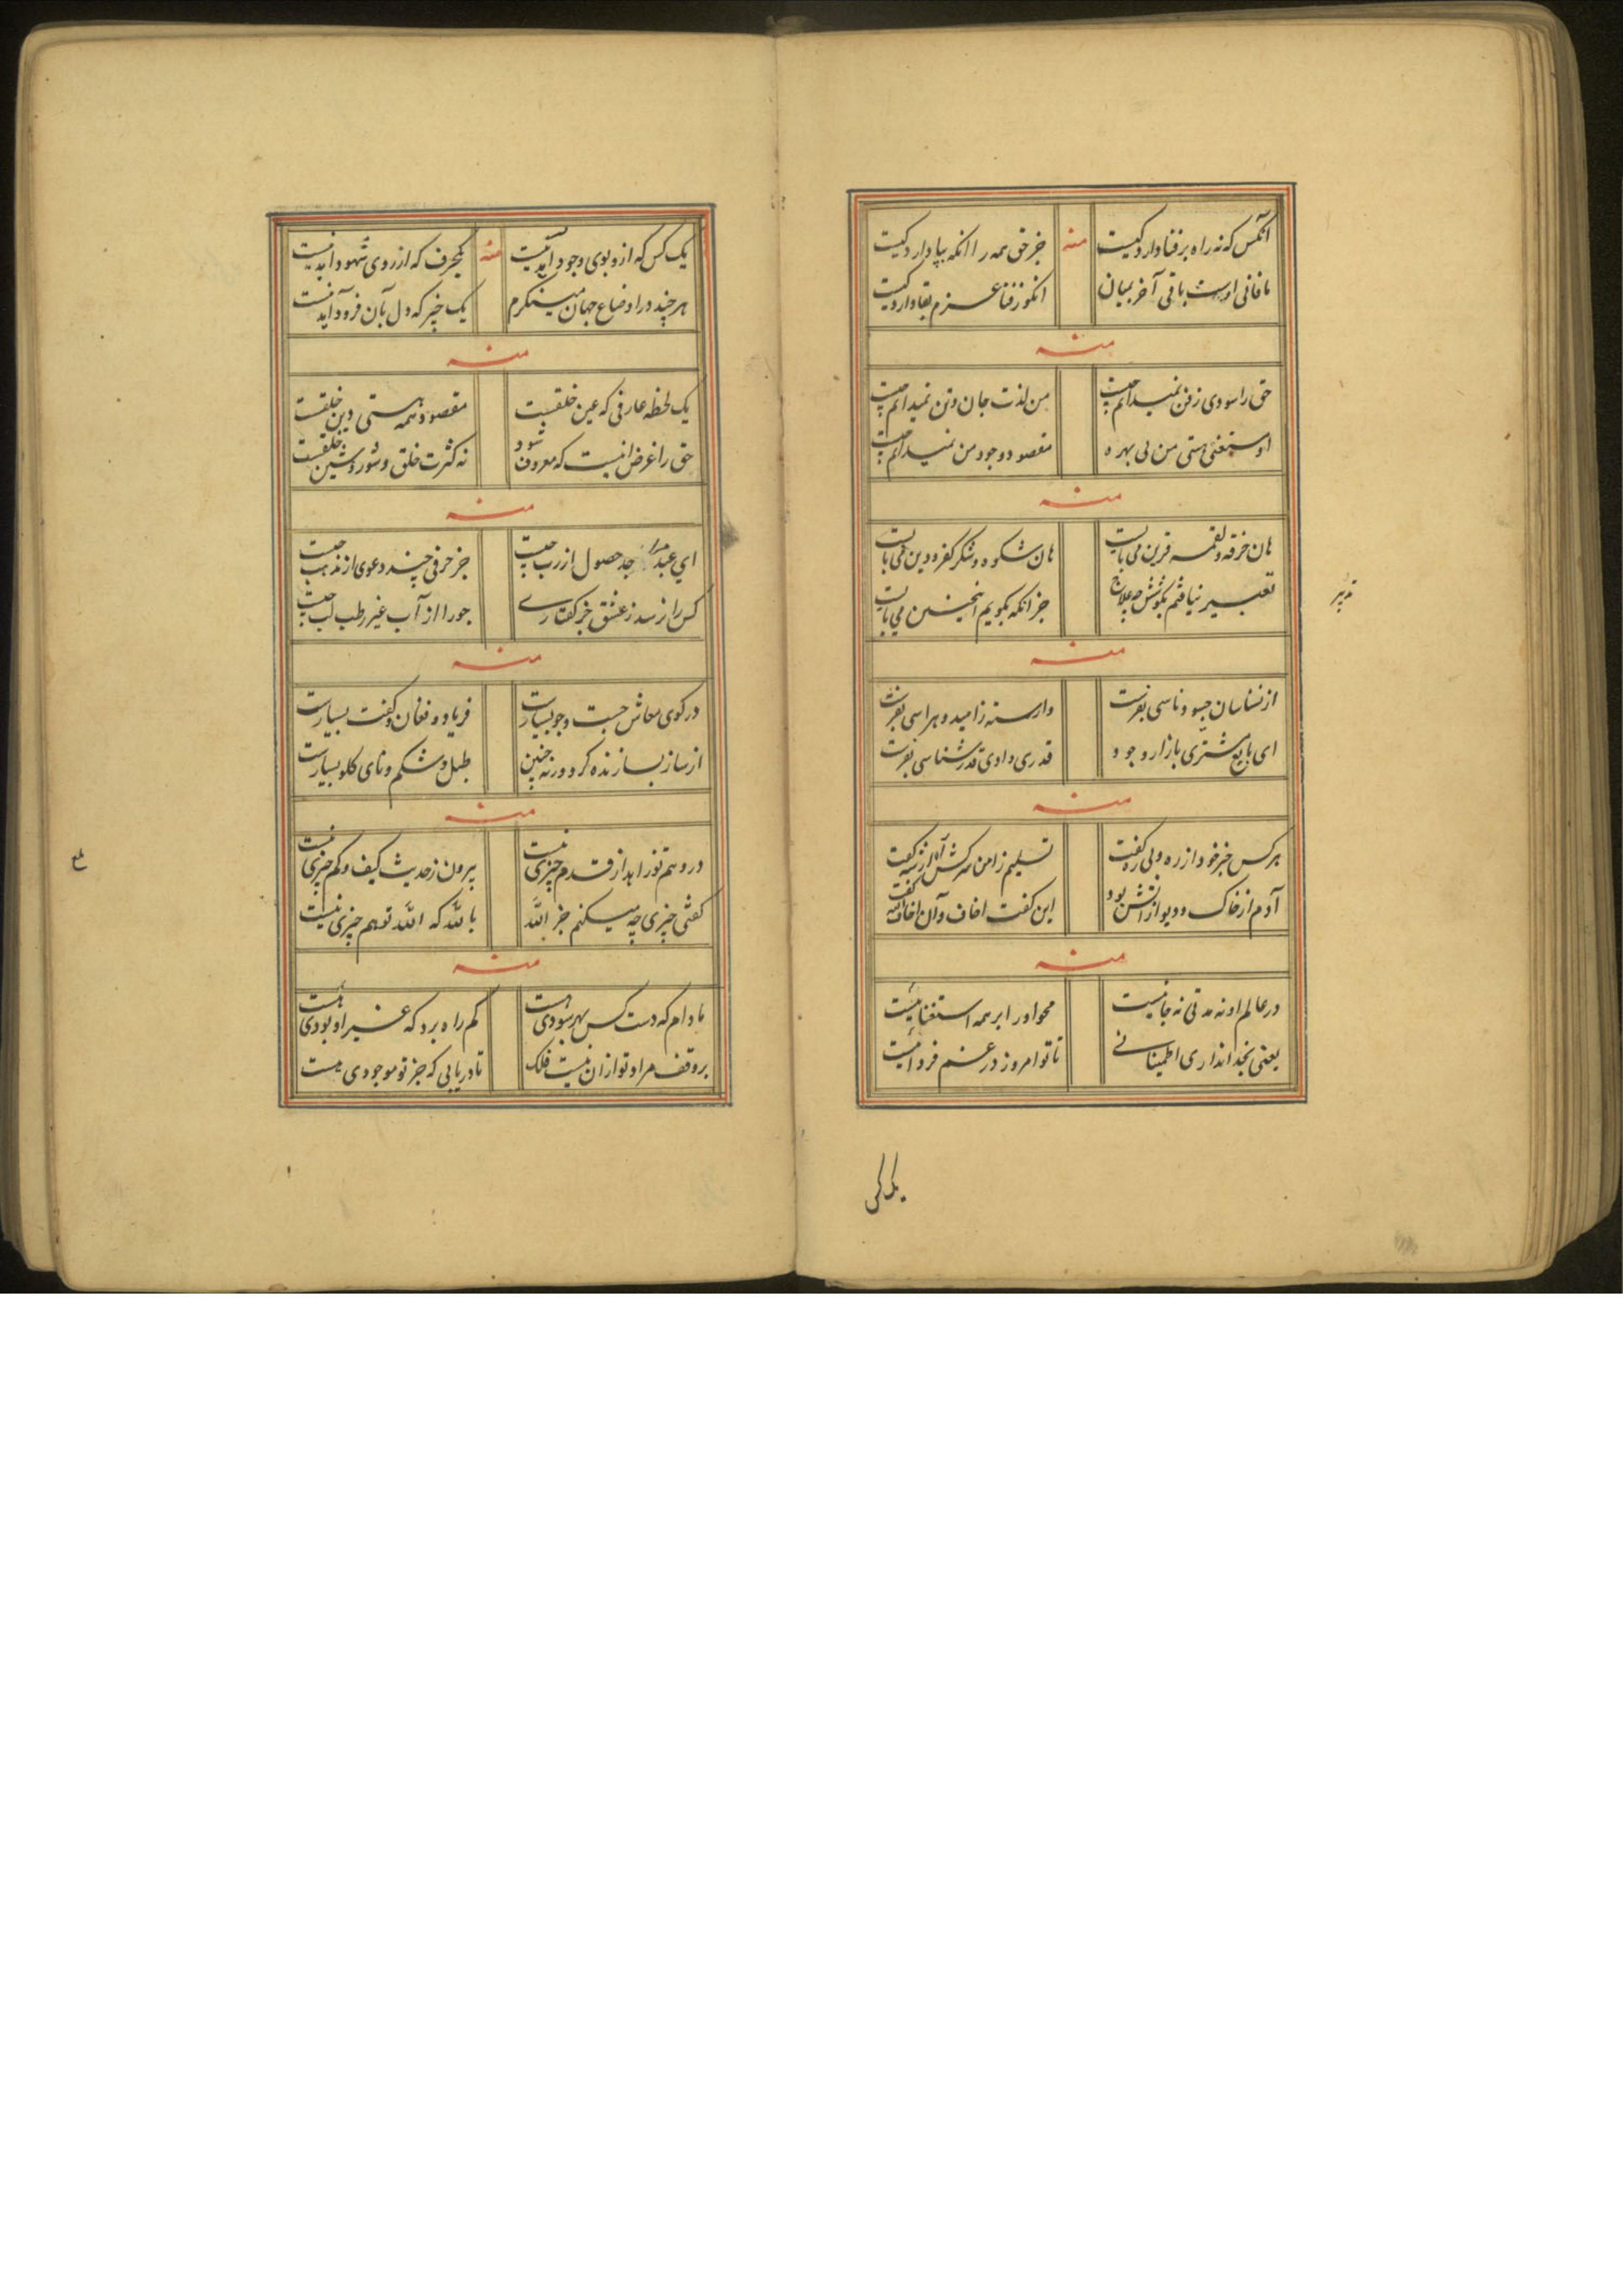 آنکس که نه راه بر فنا دارد کیست
منه
جز حق همه را انکه بپا دارد کیست
ما فانی اوست باقی آخر بمیان
انکو ز فنا عزم بقا دارد کیست
منه
حق را سودی ز فن نمیدانم چیست
من لذت جان و تن نمیدانم چیست
او مستغنی هستی من بی بهره
مقصود وجود من نمیدانم چیست
منه
هان خرقه و لقمه قرین می بایست
هان شکوه و شکر کفر و دین می بایست
تعبیر نیافتم بکوشش چه علاج
جز انکه بگویم اینچنین می بایست
تدبیر
منه
از نسناسان جیو و ناسی بفرست
وارسته ز امید و هراسی بفرست
ای بایع مشتری بازار وجود
قدری دادی قدرشناسی بفرست
منه
هرکس خبر خود از ره و بی ره گفت
تسلیم ز امن سرکش از گفت
آدم از خاک و دیو از آتش بود
این گفت اخاف و آن اخاف گفت
منه
در عالم او نه مدتی نه جائیست
محو او را بر همه استغنائیست
یعنی بخدا نداری اطمینانی
تا تو امروز در غم فردائیست
یک کس
یک کس که ازو بوی وجود آید نیست
منه
یکحرف که از روی شهود آید نیست
هرچند در اوضاع جهان مینگرم
یک چیز که دل بآن فرود آید نیست
منه
یک لحظه عارفی که عین خلقست
مقصود همه هستی و دین خلقست
حق را غرض انیست که معروف شود
نه کثرت خلق و شور و شین خلقست
منه
ای عبد جد حصول از رب چیست
جز حرفی چند دعوی از مذهب چیست
کس را نرسد ز عشق جز گفتاری
جو را از آب غیر رطب لب چیست
منه
در کوی معاش جست و جو بسیارست
فریاد و فغان و گفت بسیارست
از ساز بسازنده گرو ورنه چنین
طبل شکم و نای گلو بسیارست
منه
در وهم تو زابد از قدم چیزی نیست
بیرون ز حدیث کیف و کم چیزی نیست
گفتی چیزی چه میکنم جز الله
بالله که الله تو هم چیزی نیست
منه
مادام که دست کس بهر سودی هست
کم راه برد که غیر او بودی هست
بر وقف مراد تو ازان نیست فلک
تا دریابی که جز تو موجودی هست